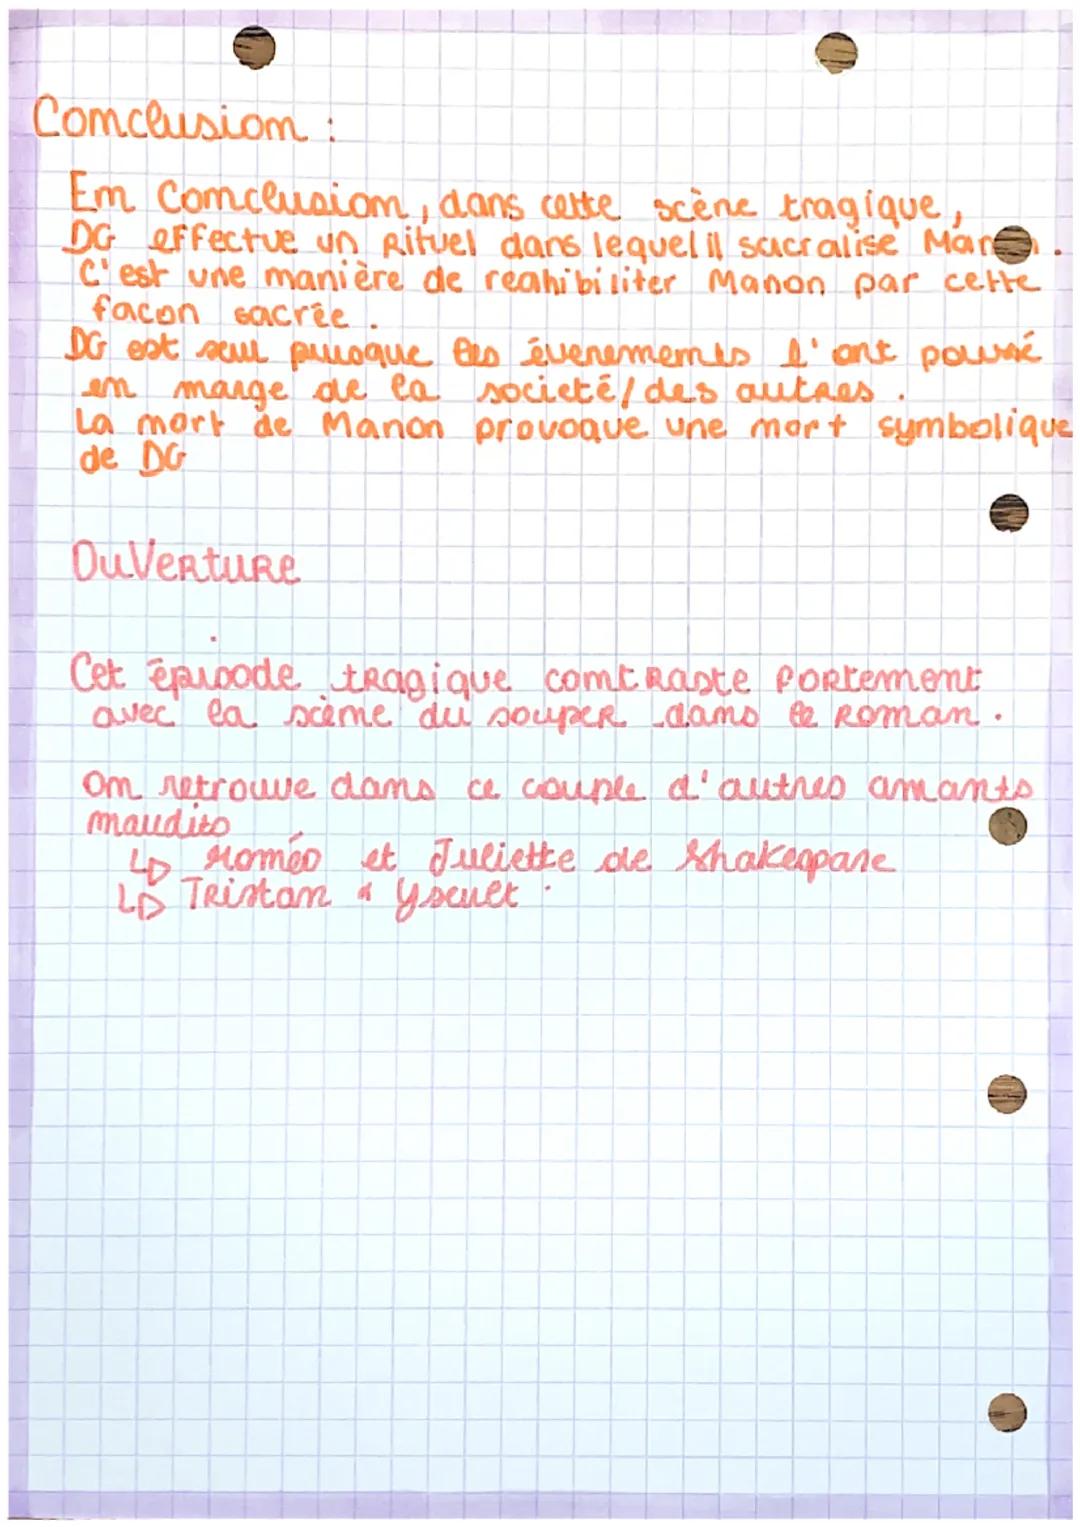 Conclusion :
En Conclusion, dans cette scène tragique,
DG effectue un Rituel dans lequel il sacralise Man
C'est une manière de reahibiliter Manon par cette
facon sacrée.
DG est seul puisque les évenements l'ont poussé
en marge de la societé/des autres.
La mort de Manon provoque une mort symbolique
de DG
OuVERTURE
Cet épisode tragique contraste fortement
avec la scène du souper dans le Roman.
On retrouve dans ce couple d'autres amants
maudits
↳ Roméo et Juliette de Shakespare
↳ Tristan & Yseult.